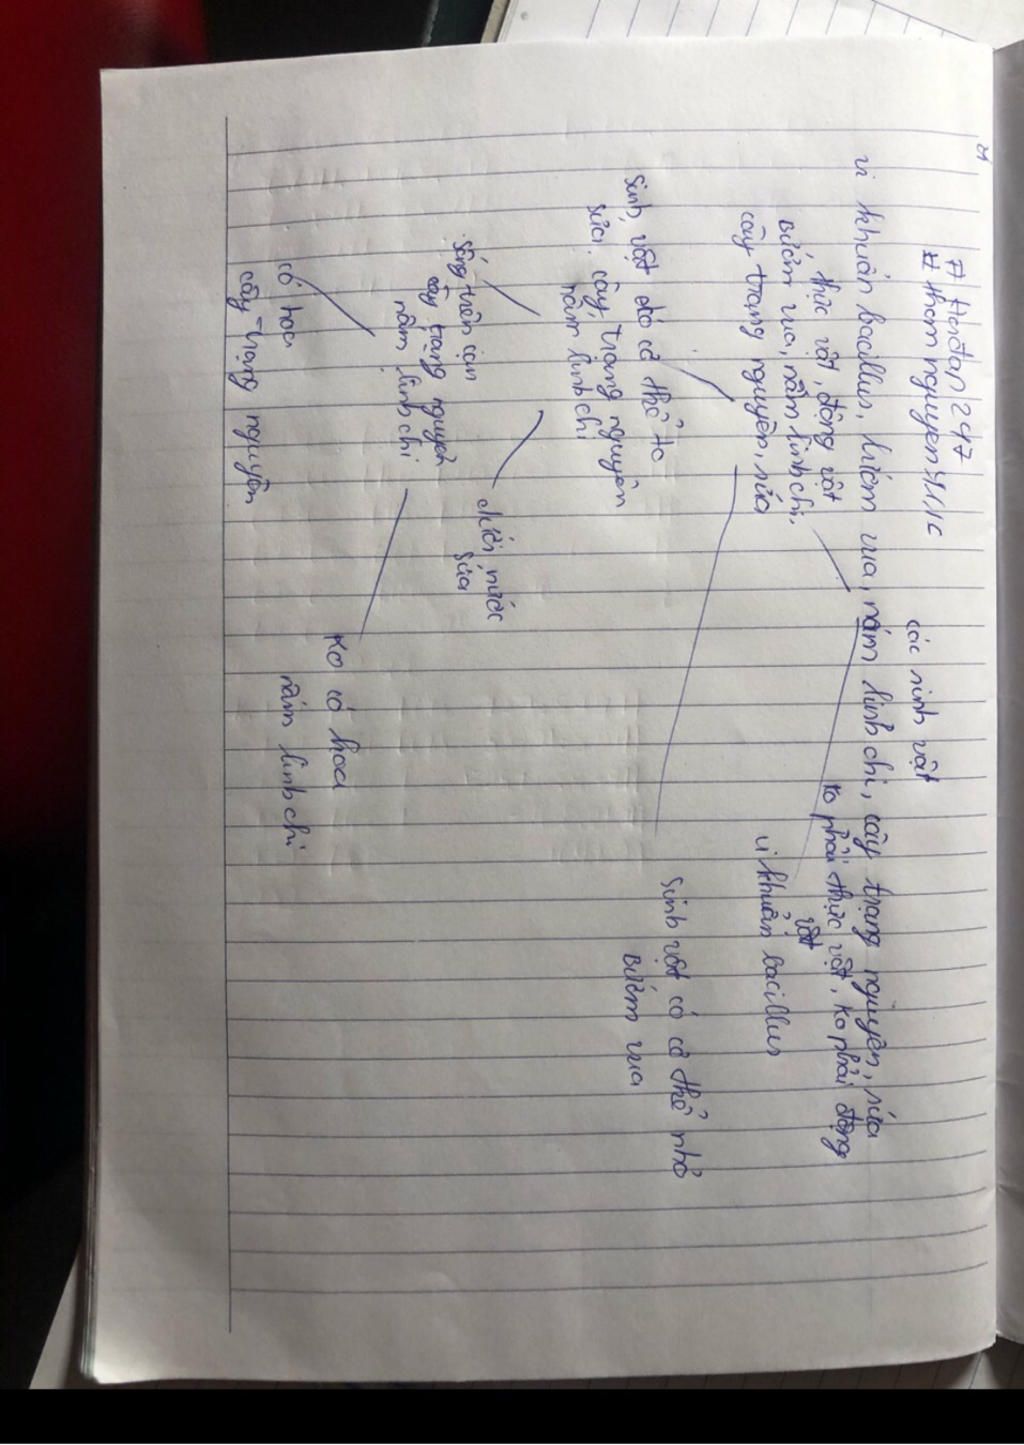 # Hoidap247
các sinh vật
vi khuẩn bacillus, bướm vua, nấm linh chi, cây trạng nguyên, sứa
thực vật, động vật
bướm vua, nấm linh chi,
cây trạng nguyên, sứa
ko phải thực vật, ko phải động
vật
vi khuẩn bacillus
sinh vật đó có thể to
sứa, cây trạng nguyên
nấm linh chi
sinh vật có cơ thể nhỏ
bướm vua
sống trên cạn
cây trạng nguyên
nấm linh chi
dưới nước
sứa
có hoa
cây trạng nguyên
ko có hoa
nấm linh chi